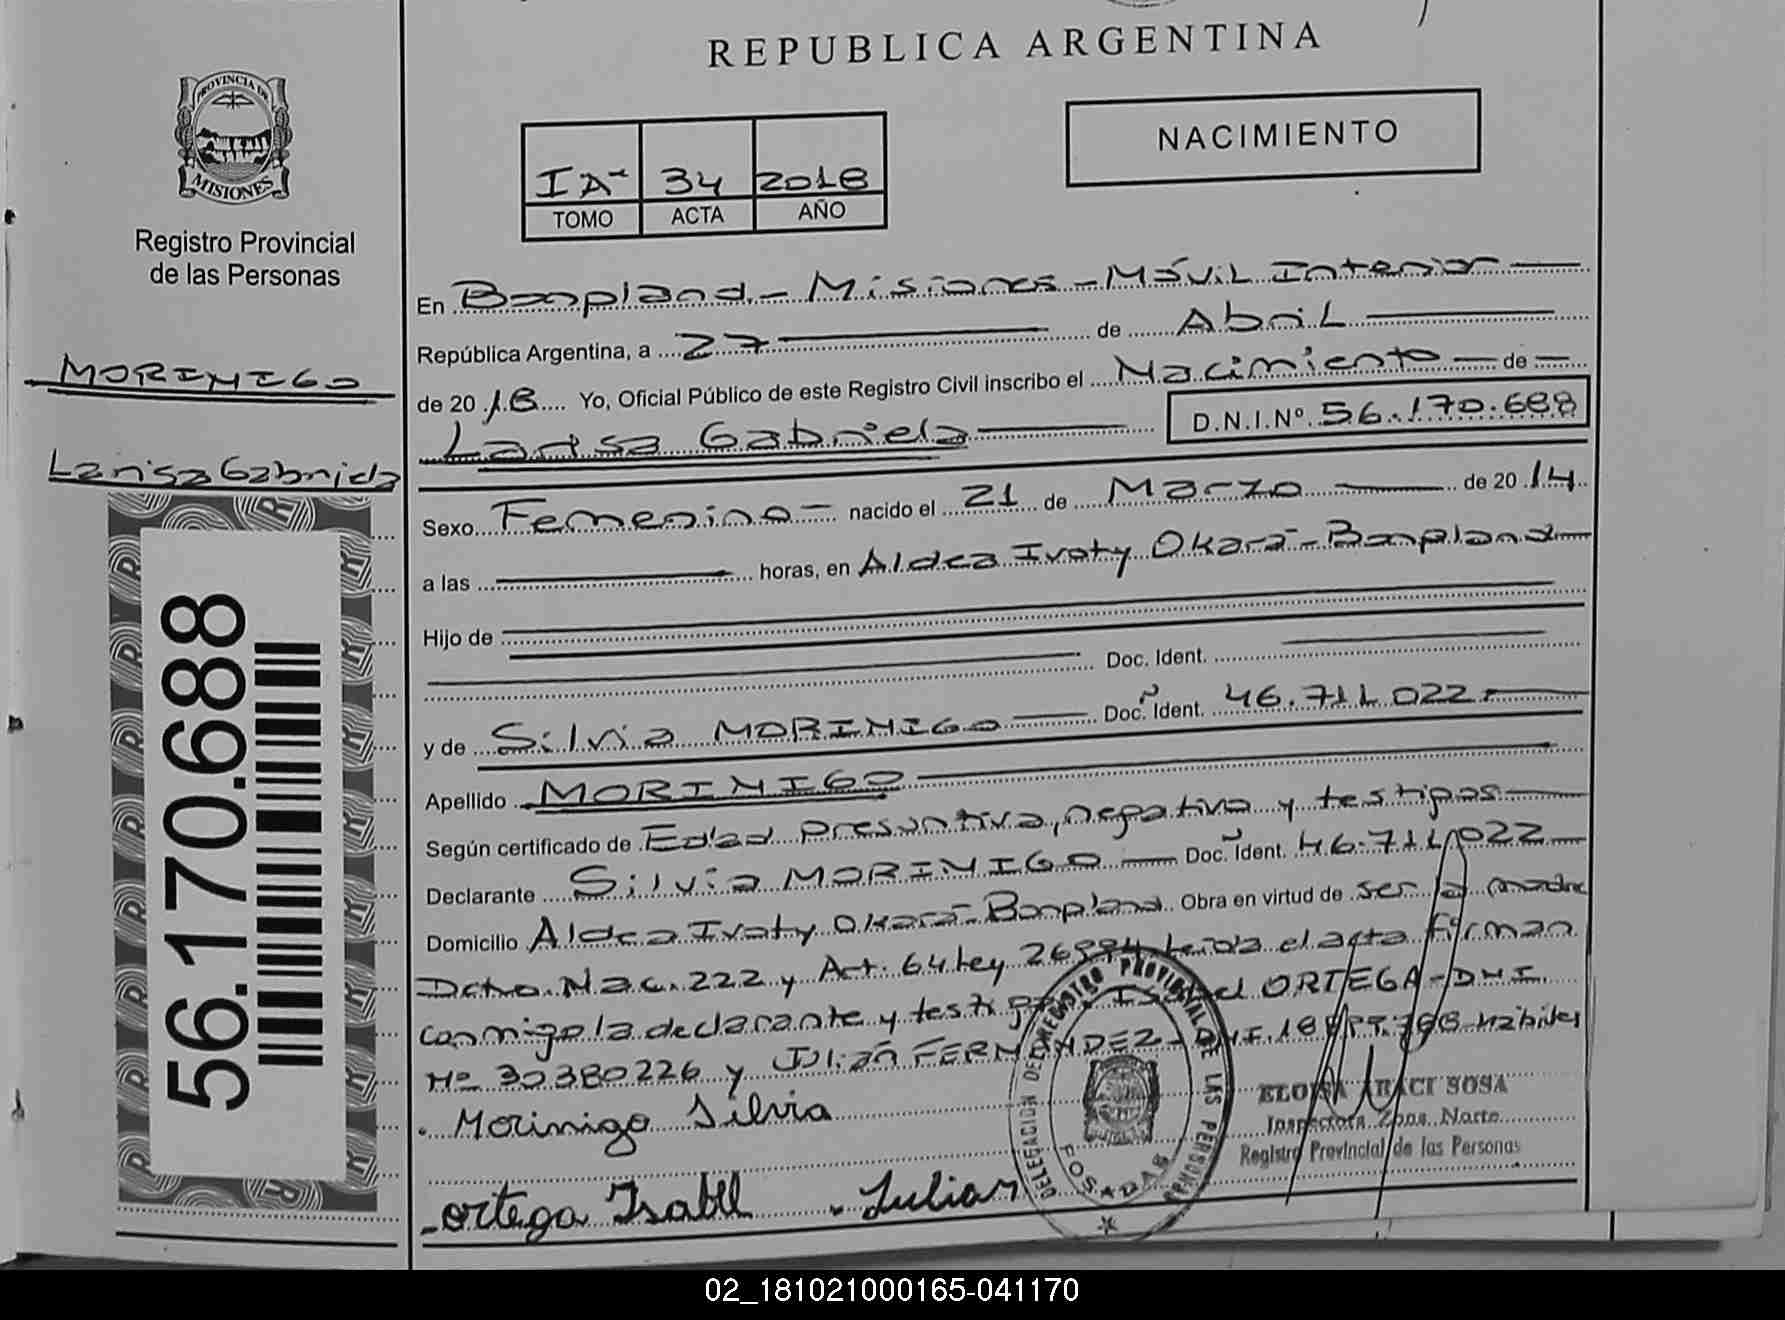 REPUBLICA ARGENTINA
PROVINCIA DE
MISIONES
Registro Provincial
de las Personas
MORINIGO
Larisa Gabriela
56.170.688
IA- 34 2018
TOMO ACTA AÑO
NACIMIENTO
En Bonpland - Misiones - Móvil Interior
República Argentina, a 27 de Abril
de 2018 Yo, Oficial Público de este Registro Civil inscribo el Nacimiento de
Larisa Gabriela D.N.I.Nº 56.170.688
Sexo Femenino - nacido el 21 de Marzo de 2014
a las horas, en Aldea Ivoty Okara - Bonpland
Hijo de
Doc. Ident.
y de Silvia MORINIGO Doc. Ident. 46.711.022
Apellido MORINIGO
Según certificado de Edad presuntiva, negativa y testigos
Declarante Silvia MORINIGO Doc. Ident. 46.711.022
Domicilio Aldea Ivoty Okara - Bonpland Obra en virtud de ser la madre
Dcto. Nac. 222 y Art. 64 Ley 26994 leída el acta firman
conmigo la declarante y testigos Isabel ORTEGA - DNI
Nº 30380226 y Julián FERNANDEZ - hábiles
Morinigo Silvia
ortega Isabel Julian
DELEGACION DEL REGISTRO PROVINCIAL DE LAS PERSONAS
POSADAS
ELOISA ARACI SOSA
Inspectora Zona Norte
Registro Provincial de las Personas
02_181021000165-041170